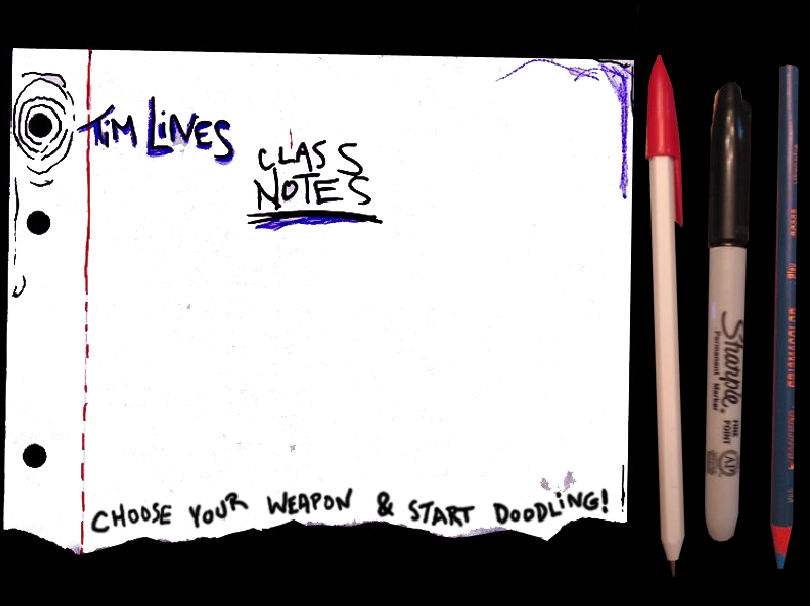 TiM LiNES
CLASS
NOTES
CHOOSE YOUR WEAPON & START DOODLiNG!
Sharpie
Permanent Marker
FINE
POINT
AP